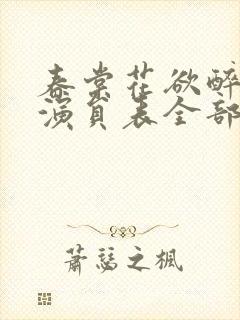 春棠花欲醉
演员表全部
萧瑟之枫